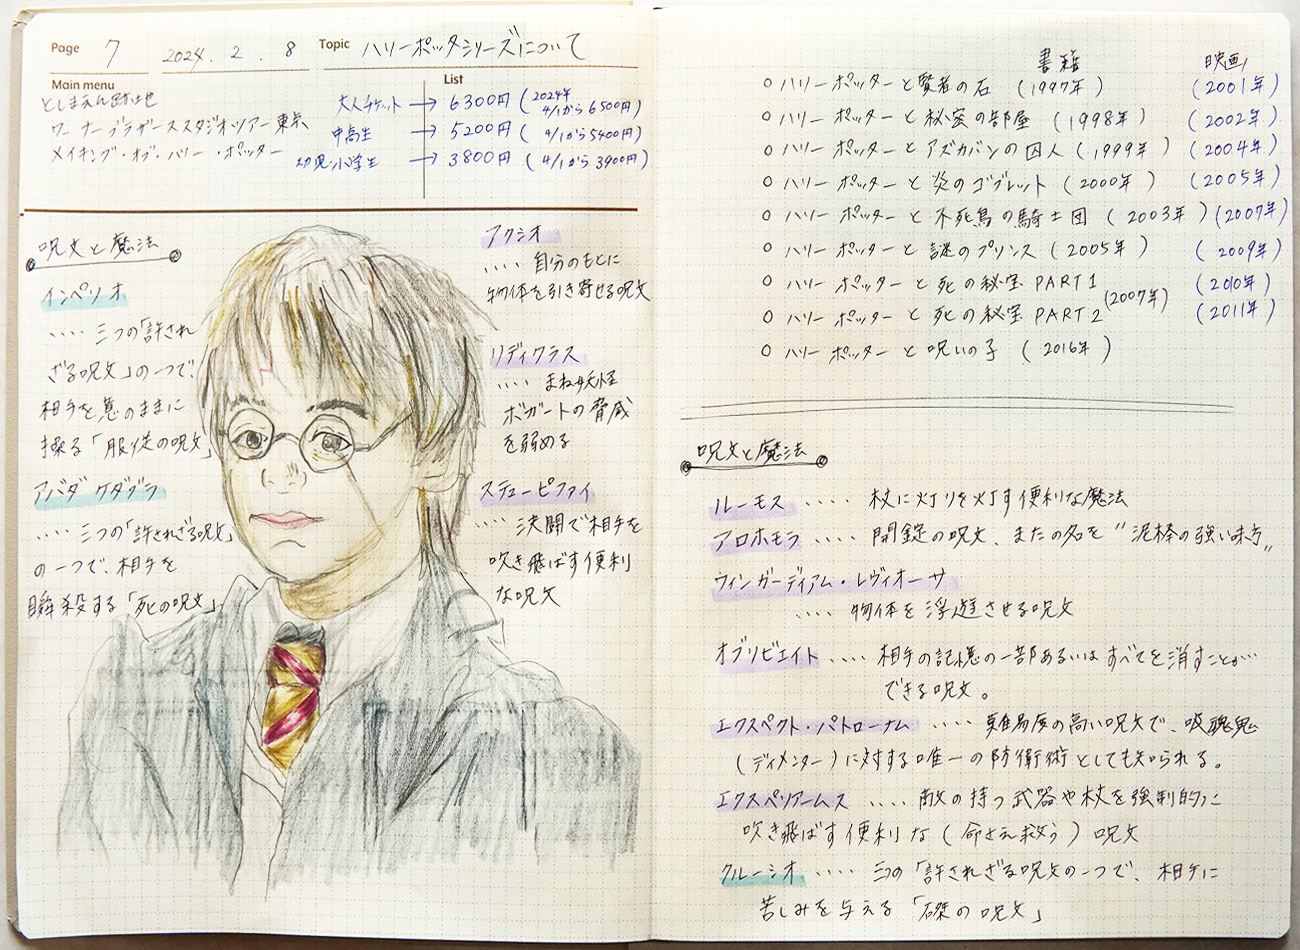 Page 7 2024. 2. 8 Topic ハリーポッタシリーズについて
Main menu
としまえん跡地
ワーナーブラザーススタジオツアー東京
メイキング・オブ・ハリー・ポッター
List
大人チケット → 6300円 (2024年 4/1から6500円)
中高生 → 5200円 (4/1から5400円)
幼児・小学生 → 3800円 (4/1から3900円)
呪文と魔法
インペリオ
‥‥ 三つの「許され
ざる呪文」の一つで、
相手を意のままに
操る「服従の呪文」
アバダ ケダブラ
‥‥ 三つの「許されざる呪文」
の一つで、相手を
瞬殺する「死の呪文」
アクシオ
‥‥ 自分のもとに
物体を引き寄せる呪文
リディクラス
‥‥ まね妖怪
ボガートの脅威
を弱める
ステューピファイ
‥‥ 決闘で相手を
吹き飛ばす便利
な呪文
書籍 映画
○ ハリー ポッターと賢者の石 (1997年) (2001年)
○ ハリー ポッターと秘密の部屋 (1998年) (2002年)
○ ハリー ポッターとアズカバンの囚人 (1999年) (2004年)
○ ハリー ポッターと炎のゴブレット (2000年) (2005年)
○ ハリー ポッターと不死鳥の騎士団 (2003年) (2007年)
○ ハリー ポッターと謎のプリンス (2005年) (2009年)
○ ハリー ポッターと死の秘宝 PART1 (2010年)
○ ハリー ポッターと死の秘宝 PART2 (2007年) (2011年)
○ ハリー ポッターと呪いの子 (2016年)
呪文と魔法
ルーモス ‥‥ 杖に灯りを灯す便利な魔法
アロホモラ ‥‥‥ 開錠の呪文、またの名を"泥棒の強い味方"
ウィンガーディアム・レヴィオーサ
‥‥ 物体を浮遊させる呪文
オブリビエイト ‥‥ 相手の記憶の一部あるいはすべてを消すことが
できる呪文。
エクスペクト・パトローナム ‥‥ 難易度の高い呪文で、吸魂鬼
(ディメンター)に対する唯一の防衛術としても知られる。
エクスペリアームス ‥‥ 敵の持つ武器や杖を強制的に
吹き飛ばす便利な(命さえ救う)呪文
クルーシオ ‥‥ 三つの「許されざる呪文の一つで、相手に
苦しみを与える「磔の呪文」